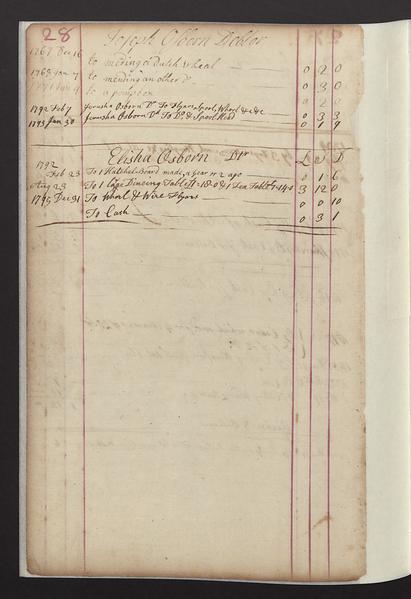 28
Joseph Osborn Debtor
1767 Dec 16 to mending a Dutch wheal 0 2 0
1769 Jan 7 to mending another Do 0 3 0
to a 0 2 0
1792 Feb 7 Jerusha Osborn Dr To Flyers, Spool, Wheel &c &c 0 3 3
1793 Jan 30 Jerusha Osborn Dr To Do & Spool 0 1 9
Elisha Osborn Dtr £ S D
1792
Feb 23 To 1 Hatchel-Board made, a year or 2 ago 0 1 6
Aug 23 To 1 large Dineing Table 1-18-0 & 1 Tea Table 1-14-0 3 12 0
1795 Dec 31 To Whorl & Wire Flyers 0 0 10
To Cash 0 3 1